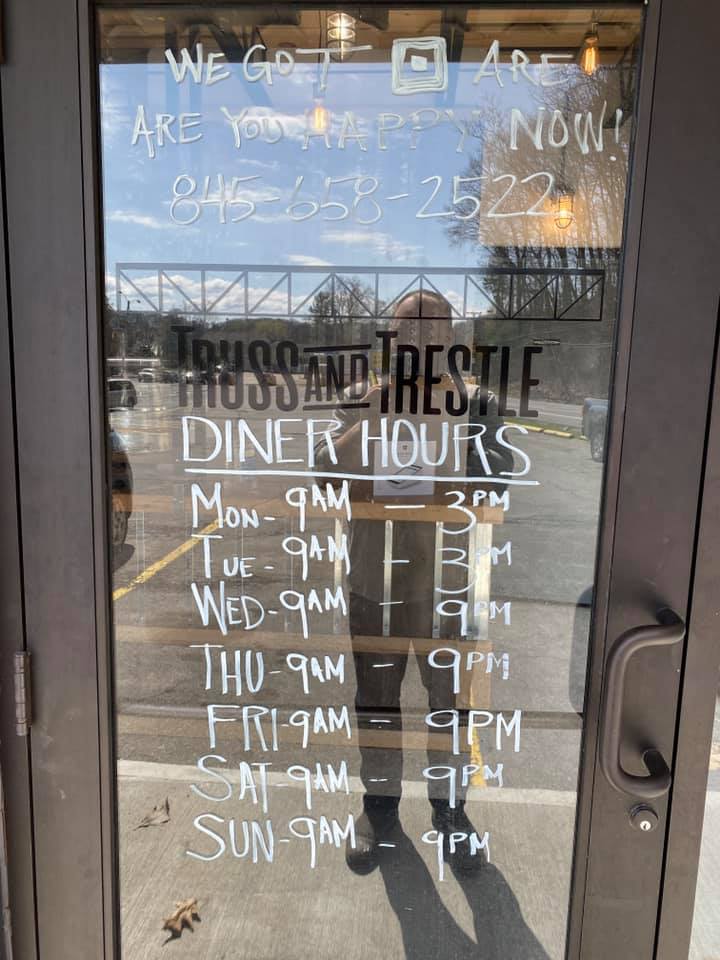 WE GOT ARE
ARE YOU HAPPY NOW!
845-658-2522
TRUSS AND TRESTLE
DINER HOURS
MON- 9AM - 3PM
TUE- 9AM - 3PM
WED-9AM - 9PM
THU-9AM - 9PM
FRI-9AM - 9PM
SAT-9AM - 9PM
SUN-9AM - 9PM